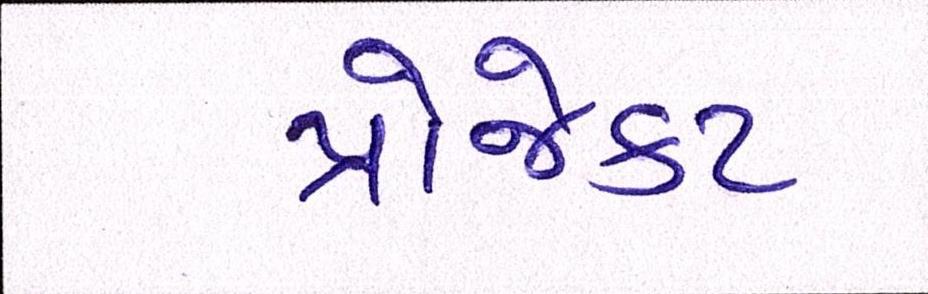 પ્રોજેકટ